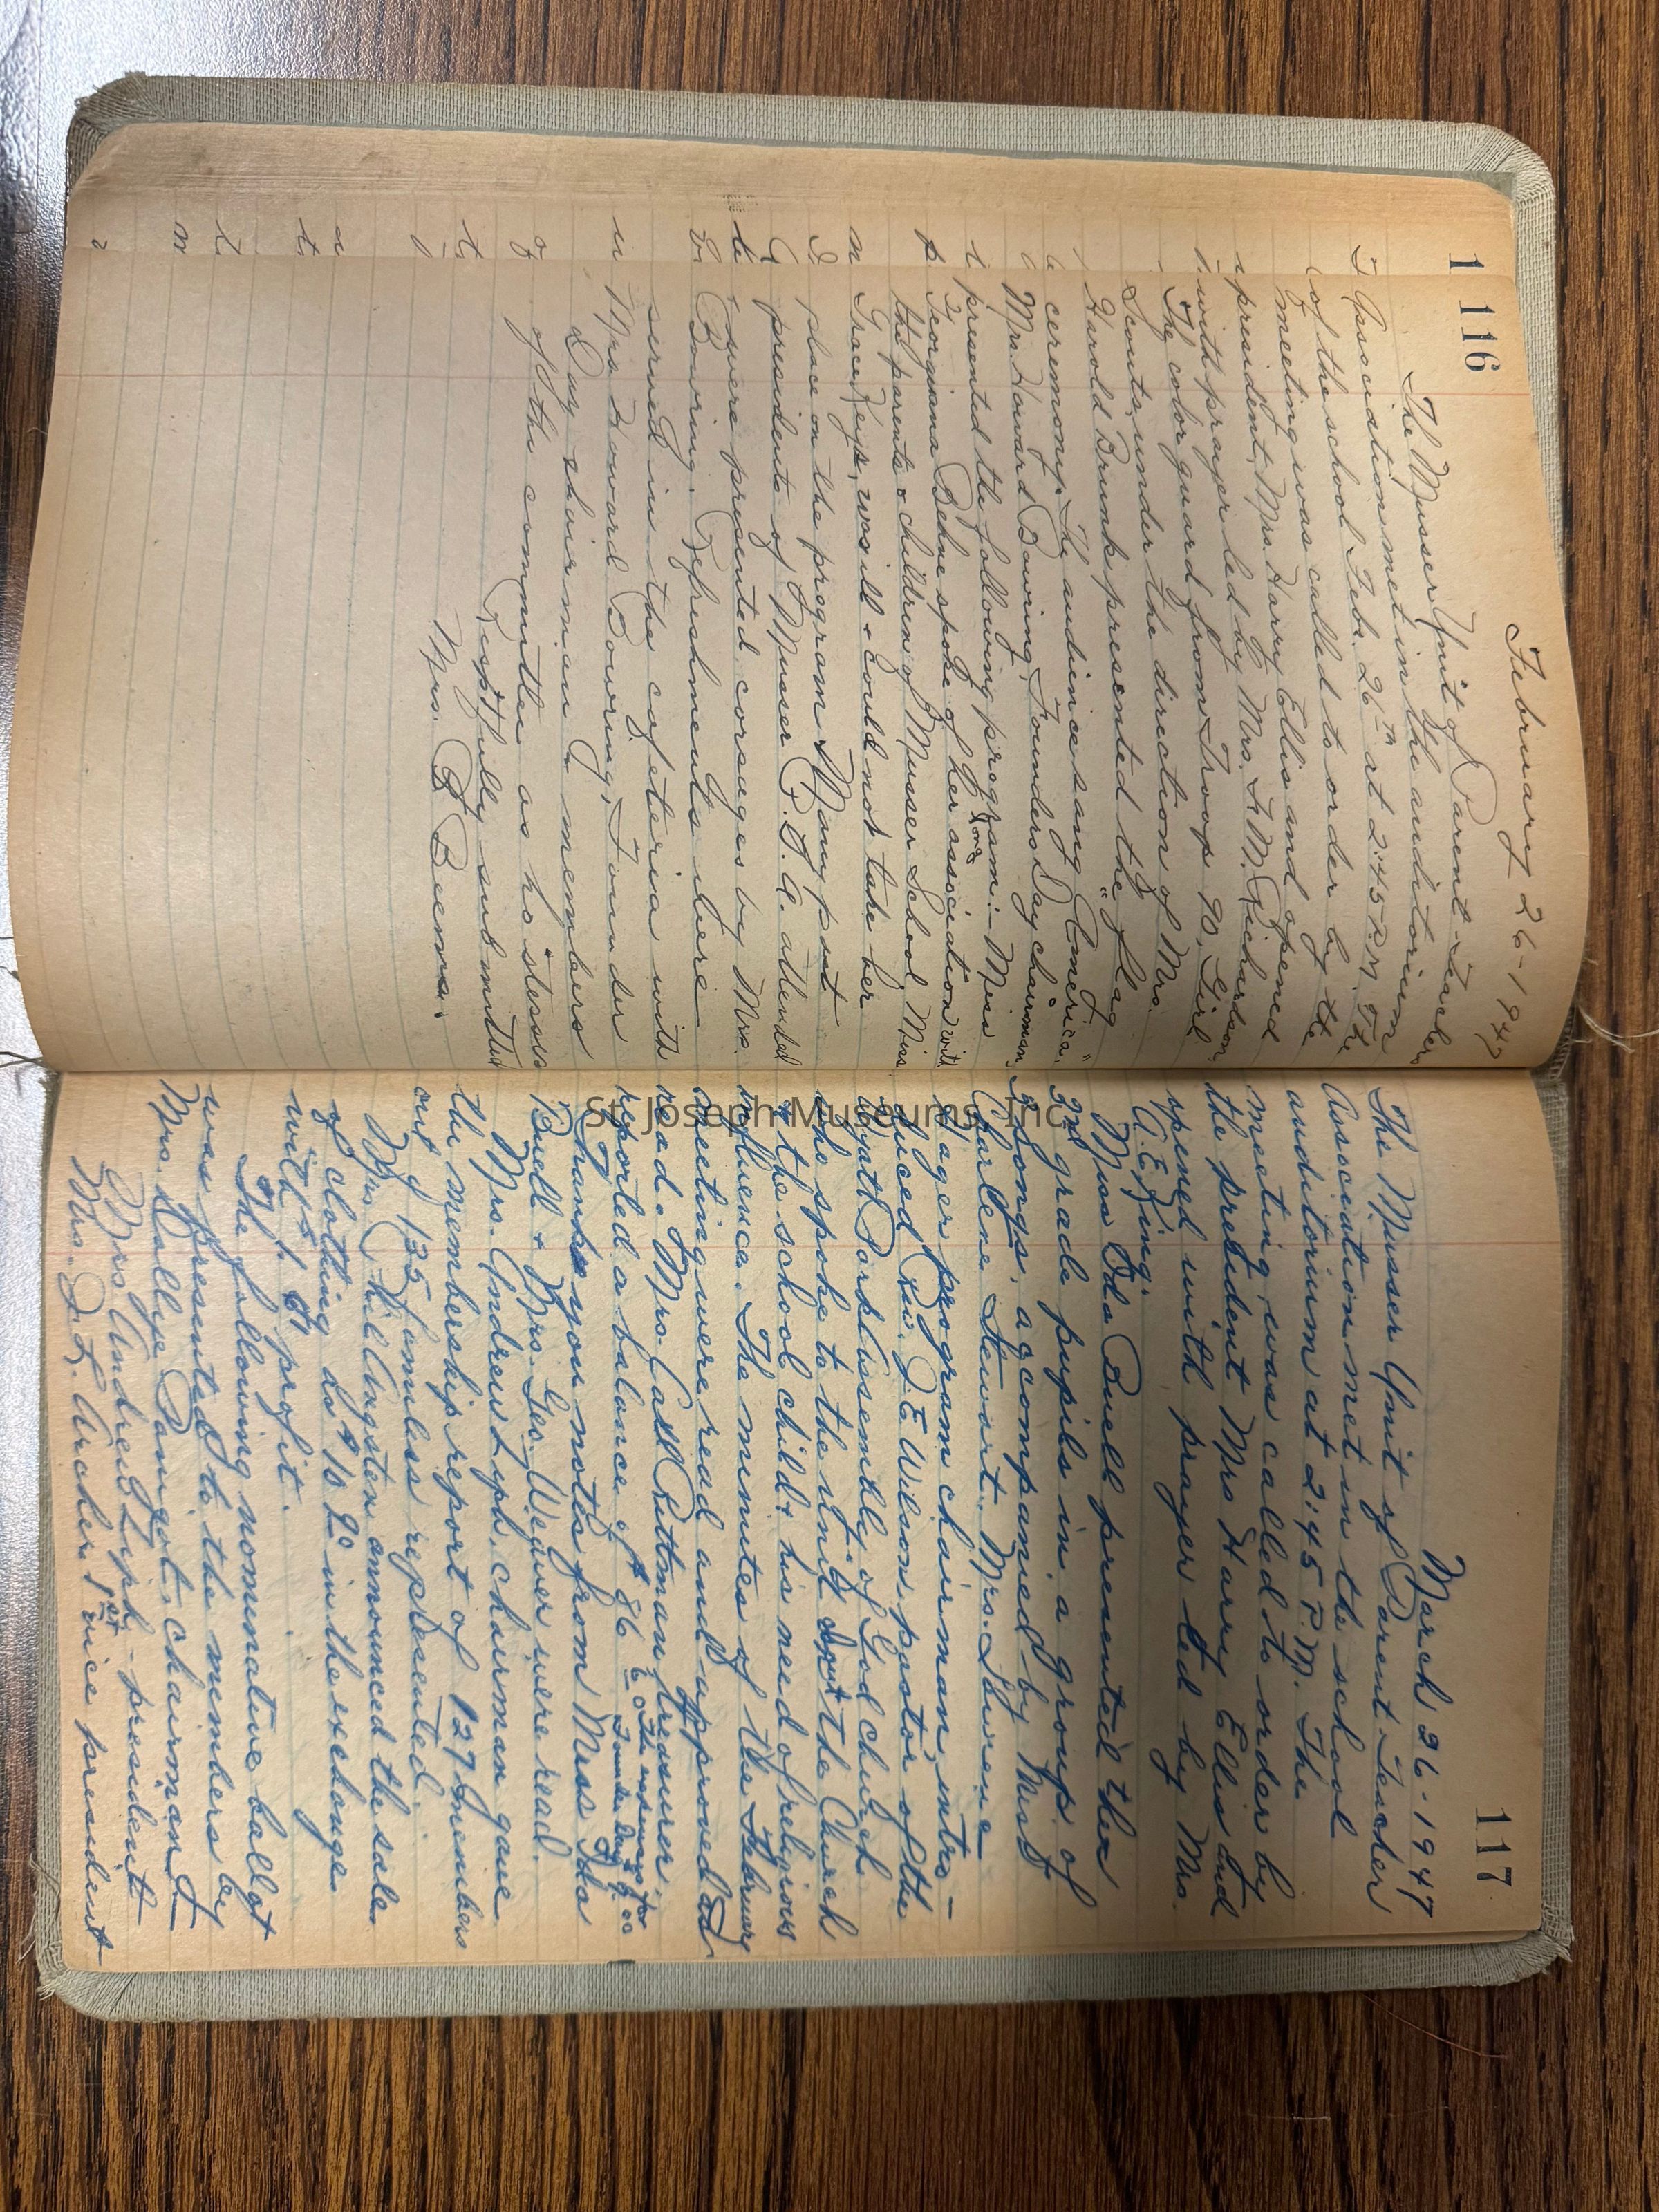 116
February 26-1947
The Musser Unit of Parent-Teacher
Association met in the auditorium
of the school Feb. 26th at 2:45 P.M. The
meeting was called to order by the
president, Mrs. Harry Ellis and opened
with prayer led by Mrs. F. M. Richardson
The color guard from Troop 90, Girl
Scouts, under the direction of Mrs.
Harold Brunk presented the flag
ceremony. The audience sang "America."
Mrs. Howard Bowring, Founders Day chairman,
presented the following program:- Miss
Georgiana Behne spoke of her long association with
the parents & children of Musser School, Miss
Grace Keys, was ill & could not take her
place on the program. Many past
presidents of Musser P.T.A. attended
were presented corsages by Mrs.
Bowring. Refreshments were
served in the cafeteria with
Mrs Howard Bowring, Founder
Day chairman & members
of the committee as hostesses
Respectfully submitted
Mrs. B Beems.
117
March 26-1947
The Musser Unit of Parent-Teacher
Association met in the school
auditorium at 2:45 P.M. The
meeting was called to order by
the president Mrs Harry Ellis and
opened with prayer led by Mrs.
A. E. King.
Miss Ida Buell presented the
2nd grade pupils in a group of
songs, accompanied by Miss
Charlene Stewart. Mrs. Lawrence
Hager, program chairman, intro-
duced Rev. J. E. Wilson, pastor of the
Hyatt Park Assembly of God church
who spoke to the unit about the Church
& the school child & his need of religious
influence. The minutes of the February
meeting were read and approved as
read. Mrs. Carl Rittman, treasurer,
reported a balance of $86 The expenses for Founders Day
Thank you notes from Miss Ida
Buell & Mrs. Geo. Weaver were read.
Mrs. Andrew Zeph, chairman gave
the membership report of 127 members
out of 135 families represented.
Mrs. Phil Angsten announced the sale
of clothing in the exchange
with profit.
The following nominative ballot
was presented to the members by
Mrs. Dallye Pangot, chairman &
Mrs Andrew Zeph - president
Mrs. J. L. Archer 1st vice president
St. Joseph Museums, Inc.